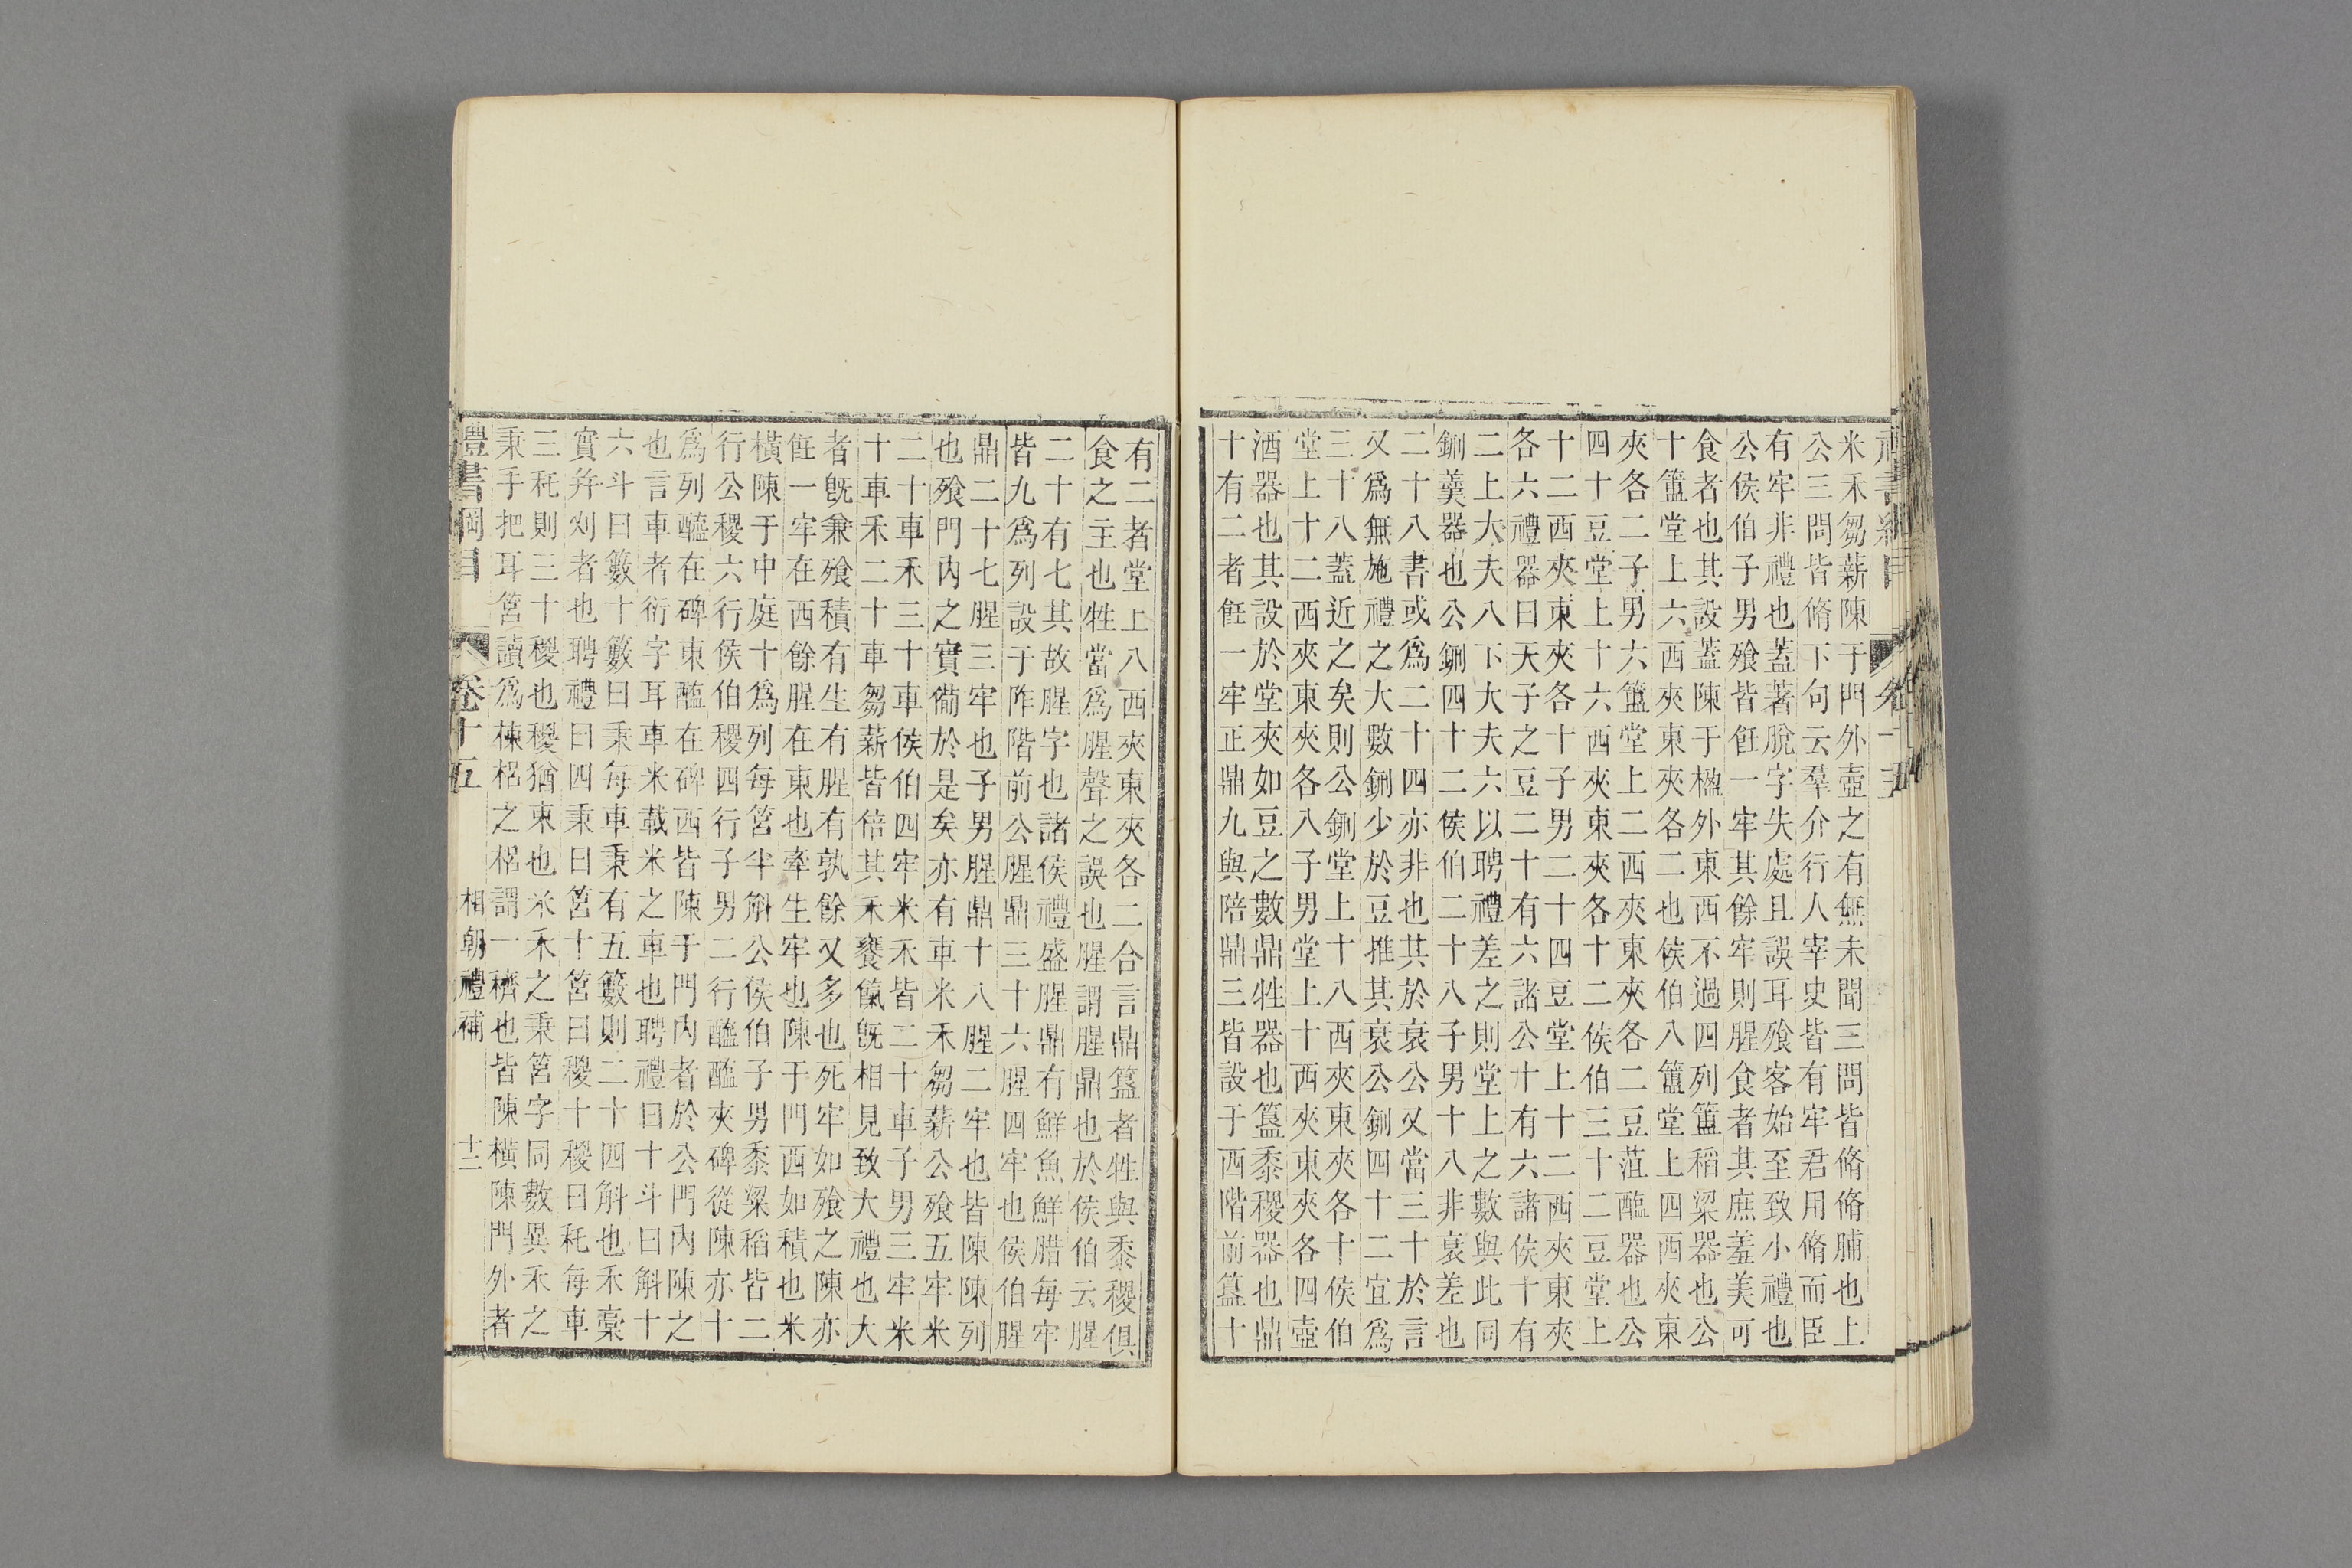 米禾芻薪陳于門外壺之有無未聞三問皆脩脩脯也上
公三問皆脩下句云羣介行人宰史皆有牢君用脩而臣
有牢非禮也蓋著脫字失處且誤耳飱客始至致小禮也
公侯伯子男飱皆飪一牢其餘牢則腥食者其庶羞美可
食者也其設蓋陳于楹外東西不過四列簠稻粱器也公
十簠堂上六西夾東夾各二也侯伯八簠堂上四西夾東
夾各二子男六簠堂上二西夾東夾各二豆菹醢器也公
四十豆堂上十六西夾東夾各十二侯伯三十二豆堂上
十二西夾東夾各十子男二十四豆堂上十二西夾東夾
各六禮器曰天子之豆二十有六諸公十有六諸侯十有
二上大夫八下大夫六以聘禮差之則堂上之數與此同
鉶羹器也公鉶四十二侯伯二十八子男十八非衰差也
二十八書或爲二十四亦非也其於衰公又當三十於言
又爲無施禮之大數鉶少於豆推其衰公鉶四十二宜爲
三十八蓋近之矣則公鉶堂上十八西夾東夾各十侯伯
堂上十二西夾東夾各八子男堂上十西夾東夾各四壺
酒器也其設於堂夾如豆之數鼎牲器也簋黍稷器也鼎
十有二者飪一牢正鼎九與陪鼎三皆設于西階前簋十
有二者堂上八西夾東夾各二合言鼎簋者牲與黍稷俱
食之主也牲當爲腥聲之誤也腥謂腥鼎也於侯伯云腥
二十有七其故腥字也諸侯禮盛腥鼎有鮮魚鮮腊每牢
皆九爲列設于阼階前公腥鼎三十六腥四牢也侯伯腥
鼎二十七腥三牢也子男腥鼎十八腥二牢也皆陳陳列
也飱門內之實備於是矣亦有車米禾芻薪公飱五牢米
二十車禾三十車侯伯四牢米禾皆二十車子男三牢米
十車禾二十車芻薪皆倍其禾饔餼既相見致大禮也大
者既兼飱積有生有腥有孰餘又多也死牢如飱之陳亦
飪一牢在西餘腥在東也牽生牢也陳于門西如積也米
橫陳于中庭十爲列每筥半斛公侯伯子男黍粱稻皆二
行公稷六行侯伯稷四行子男二行醯醢夾碑從陳亦十
爲列醯在碑東醢在碑西皆陳于門內者於公門內陳之
也言車者衍字耳車米載米之車也聘禮曰十斗曰斛十
六斗曰籔十籔曰秉每車秉有五籔則二十四斛也禾稾
實幷刈者也聘禮曰四秉曰筥十筥曰稯十稯曰秅每車
三秅則三十稯也稯猶束也米禾之秉筥字同數異禾之
秉手把耳筥讀爲棟梠之梠謂一穧也皆陳橫陳門外者
禮書綱目 卷十五 相朝禮補 十二